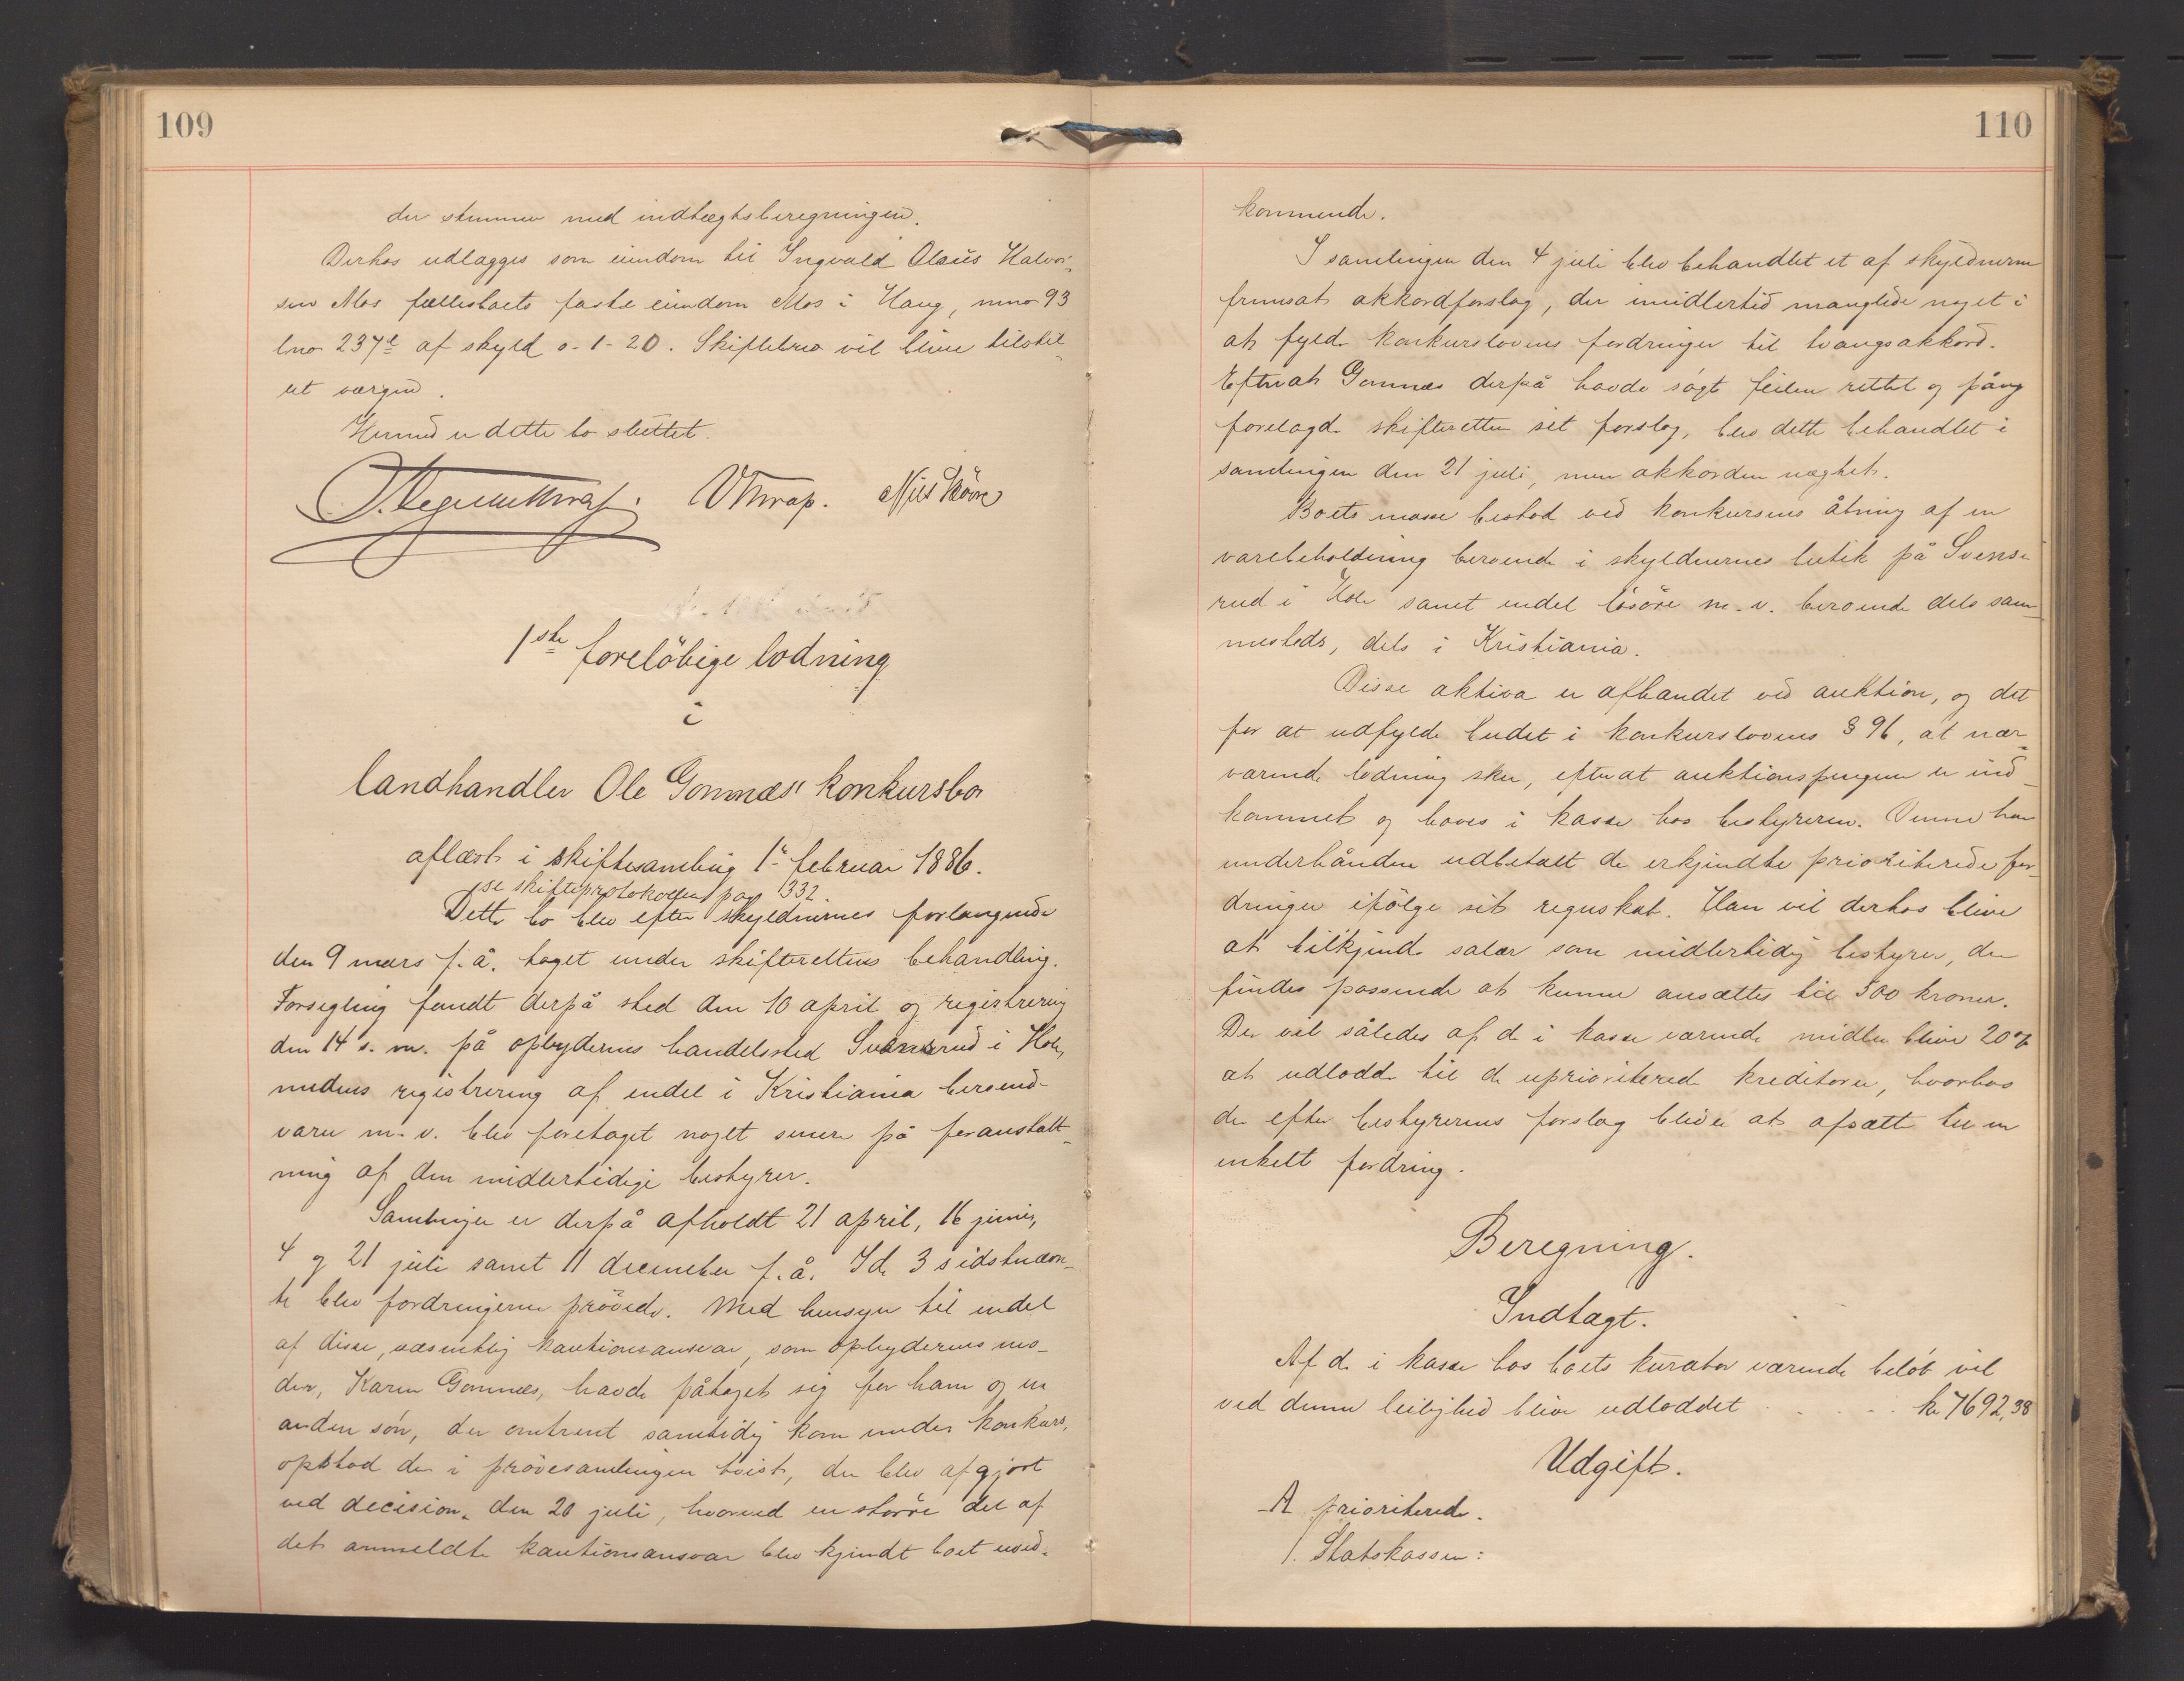 109
der stemmer med indtægtsberegningen.
Derhos udlægges som eiendom til Ingvald Olaus Halvor-
sen Mos fællesboets faste eiendom Mos i Haug, mno 93
lno 237e af skyld 0-1-20. Skiftebrev vil blive tilstil-
let værgen.
Hermed er dette bo sluttet.
Thrap. Nils
1ste foreløbige lodning
i
landhandler Ole Gomnæs' konkursbo
aflæst i skiftesamling 1ste februar 1886.
se skifteprotokollen pag 332.
Dette bo blev efter skyldnernes forlangende
den 9 mars f. å. taget under skifterettens behandling.
Forsegling fandt derpå sted den 10 april og registrering
den 14 s. m. på opbyderens handelssted Svenserud i Hole,
medens registrering af endel i Kristiania beroende
varer m. v. blev foretaget noget senere på foranstalt-
ning af den midlertidige bestyrer.
Samlinger er derpå afholdt 21 april, 16 juni,
4 og 21 juli samt 11 december f. å. I de 3 sidstnævn-
te blev fordringerne prøvede. Med hensyn til endel
af disse, væsentlig kautionsansvar, som opbyderens mo-
der, Karen Gomnæs, havde påtaget sig for ham og en
anden søn, der omtrent samtidig kom under konkurs,
opstod der i prøvesamlingen tvist, der blev afgjort
ved decision den 20 juli, hvorved en større del af
det anmeldte kautionsansvar blev kjendt boet uved-
110
kommende.
I samlingen den 4 juli blev behandlet et af skyldneren
fremsat akkordforslag, der imidlertid manglede noget i
at fylde konkurslovens fordringer til tvangsakkord.
Efterat Gomnæs derpå havde søgt feilen rettet og påny
forelagde skifteretten sit forslag, blev dette behandlet i
samlingen den 21 juli, men akkorden nægtet.
Boets masse bestod ved konkursens åbning af en
varebeholdning beroende i skyldnernes butik på Svense-
rud i Hole samt endel løsøre m. v. beroende dels sam-
mesteds, dels i Kristiania.
Disse aktiva er afhændet ved auktion, og det
for at udfylde budet i konkurslovens § 96, at nær-
værende lodning sker, efterat auktionspengene er ind-
kommet og haves i kasse hos bestyreren. Denne har
underhånden udbetalt de erkjendte prioriterede for-
dringer ifølge sit regnskab. Han vil derhos blive
at tilkjende salær som midlertidig bestyrer, der
findes passende at kunne ansættes til 500 kroner.
Der vil således af de i kasse værende midler blive 20 %
at udlodde til de uprioriterede kreditorer, hvorhos
der efter bestyrerens forslag bliver at afsætte til en
enkelt fordring.
Beregning.
Indtægt.
Af de i kasse hos boets kurator værende beløb vil
ved denne leilighed blive udloddet . . . . . kr 7692,38
Udgift.
A prioriterede.
1. Statskassen: